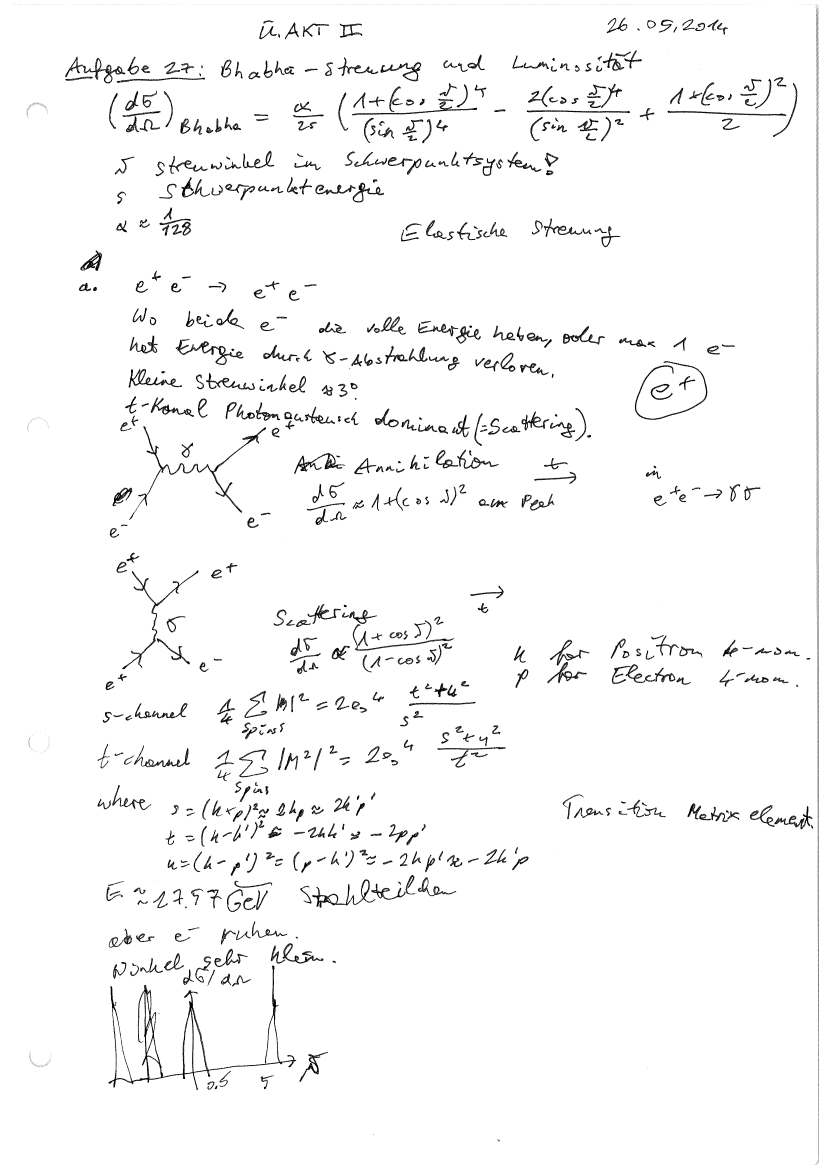 Ü. AKT II 26.05.2014
Aufgabe 27: Bhabha-Streuung und Luminosität
(dσ/dΩ)Bhabha = α/2s ( (1+(cos ϑ/2)^4)/(sin ϑ/2)^4 - 2(cos ϑ/2)^4/(sin ϑ/2)^2 + (1+(cos ϑ/2)^2)/2 )
ϑ streuwinkel im Schwerpunktsystem!
s Schwerpunktenergie
α ≈ 1/128
Elastische Streuung
a. e+ e- → e+ e-
Wo beide e- die volle Energie haben, oder max 1 e-
hat Energie durch γ-Abstrahlung verloren.
Kleine Streuwinkel ≈3°
e+
t-Kanal Photonaustausch dominant (=Scattering).
e+ γ e+
e- e-
Annihilation t →
dσ/dΩ ≈ 1+(cos ϑ)^2 am Peak
in
e+e- → γγ
e+ e+
γ
e+ e-
Scattering → t
dσ/dΩ ∝ (1+cos ϑ)^2/(1-cos ϑ)^2
k for Positron 4-mom.
p for Electron 4-mom.
s-channel 1/4 Σ Spins |M|^2 = 2e_0^4 (t^2+u^2)/s^2
t-channel 1/4 Σ Spins |M^2|^2 = 2e_0^4 (s^2+u^2)/t^2
where s = (k+p)^2 ≈ 2kp ≈ 2k'p'
Transition Matrix element.
t = (k-k')^2 ≈ -2kk' ≈ -2pp'
u = (k-p')^2 = (p-k')^2 ≈ -2kp' ≈ -2k'p
E ≈ 17.97 GeV Strahlteilchen
aber e- ruhen.
Winkel sehr klein.
dσ/dΩ
0.5 5 ϑ